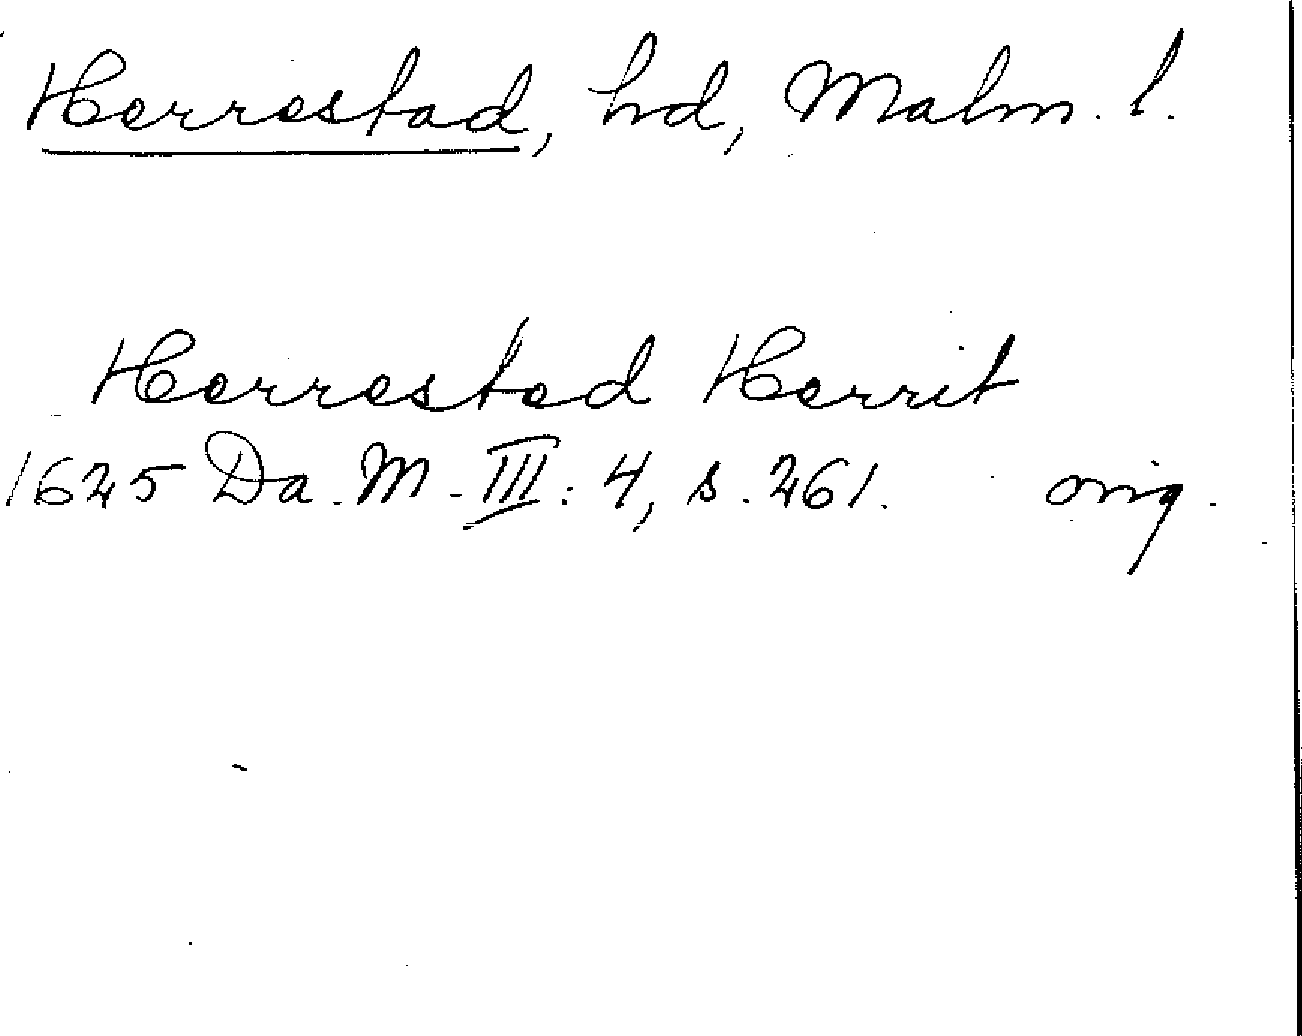 Herrestad, hd, Malm. l.
Herrested Herrit
1625 Da. M. III: 4, s. 261. orig.